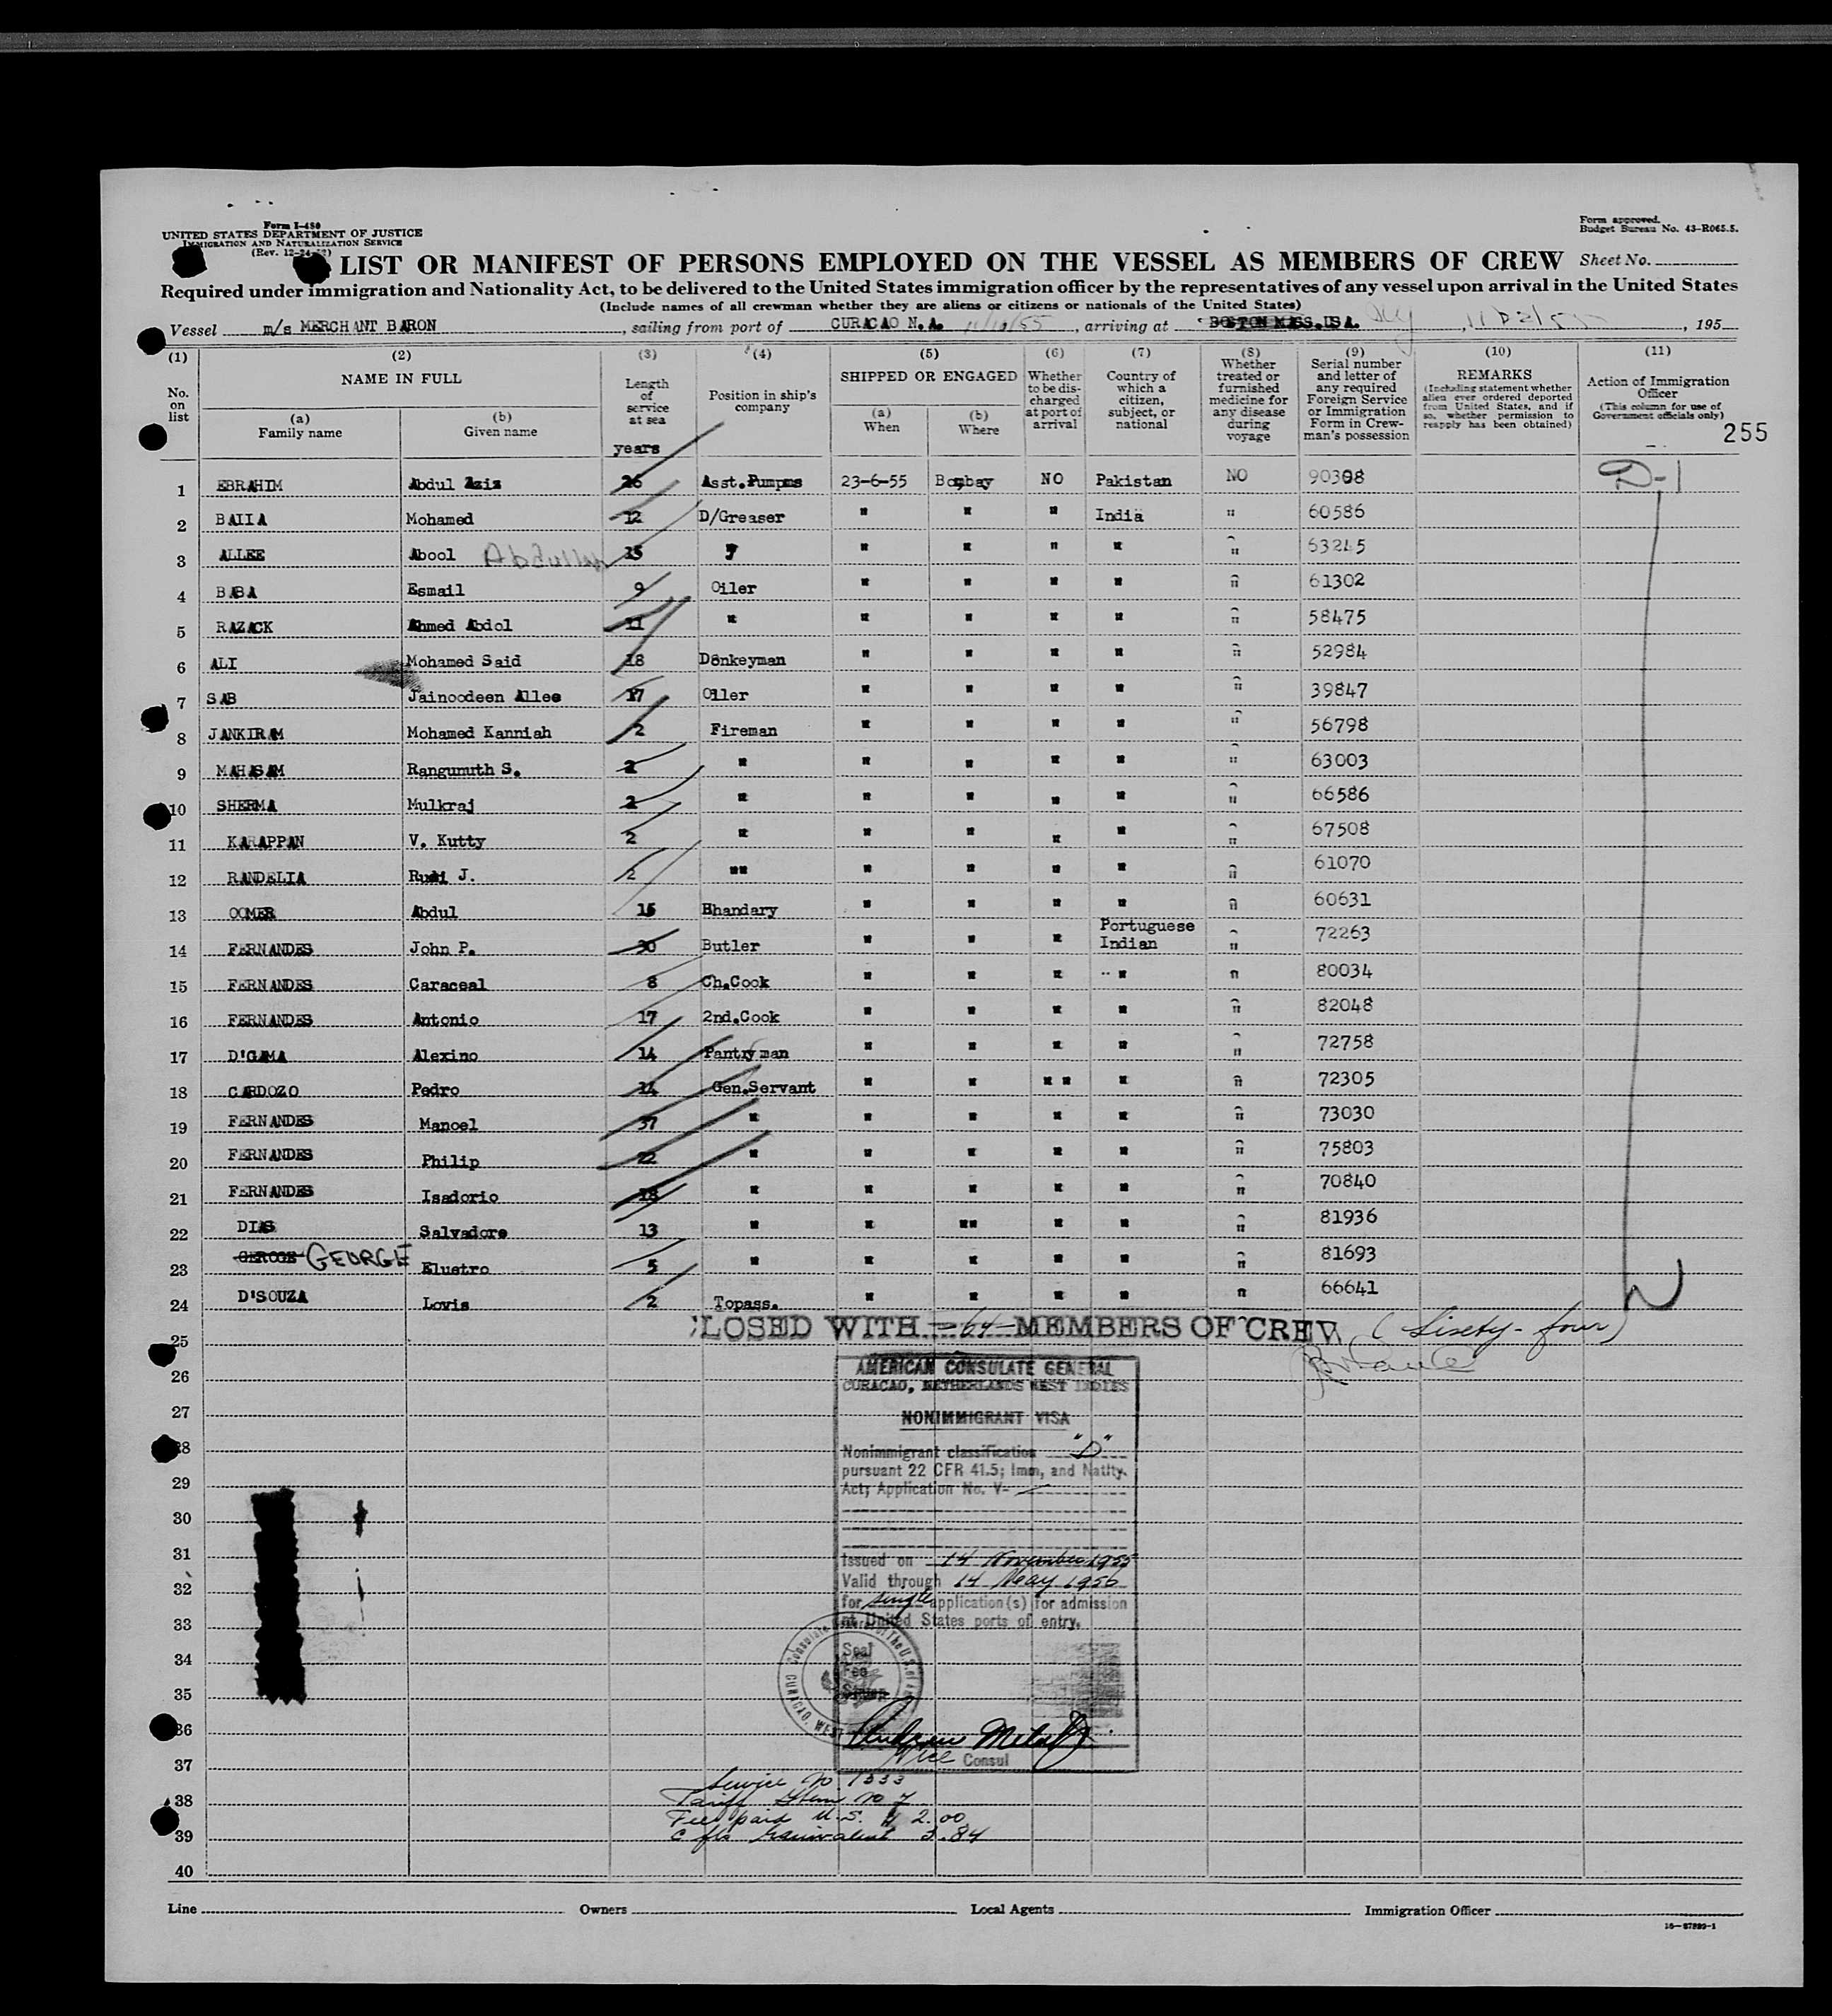 Form I-480
UNITED STATES DEPARTMENT OF JUSTICE
IMMIGRATION AND NATURALIZATION SERVICE
(Rev. 12-24-52)
Form approved.
Budget Bureau No. 43-R065.5.
LIST OR MANIFEST OF PERSONS EMPLOYED ON THE VESSEL AS MEMBERS OF CREW Sheet No.
Required under immigration and Nationality Act, to be delivered to the United States immigration officer by the representatives of any vessel upon arrival in the United States
(Include names of all crewman whether they are aliens or citizens or nationals of the United States)
Vessel m/s MERCHANT BARON, sailing from port of CURACAO N.A. 11/14/55, arriving at BOSTON MASS. USA. , 195
(1) (2) (3) (4) (5) (6) (7) (8) (9) (10) (11)
No. on list
NAME IN FULL
(a) Family name
(b) Given name
Length of service at sea
years
Position in ship's company
SHIPPED OR ENGAGED
(a) When
(b) Where
Whether to be discharged at port of arrival
Country of which a citizen, subject, or national
Whether treated or furnished medicine for any disease during voyage
Serial number and letter of any required Foreign Service or Immigration Form in Crewman's possession
REMARKS
(Including statement whether alien ever ordered deported from United States, and if so, whether permission to reapply has been obtained)
Action of Immigration Officer
(This column for use of Government officials only)
255
1 EBRAHIM Abdul Aziz 26 Asst.Pumpms 23-6-55 Bombay NO Pakistan NO 90398 D-1
2 BAIIA Mohamed 12 D/Greaser " " " India " 60586
3 ALLEE Abool Abdullah 15 " " " " " " 63245
4 BABA Esmail 9 Oiler " " " " " 61302
5 RAZACK Ahmed Abdol 11 " " " " " " 58475
6 ALI Mohamed Said 18 Donkeyman " " " " " 52984
7 SAB Jainoodeen Allee 17 Oiler " " " " " 39847
8 JANKIRAM Mohamed Kanniah 2 Fireman " " " " " 56798
9 MAHASAM Rangunuth S. 2 " " " " " " 63003
10 SHERMA Mulkraj 2 " " " " " " 66586
11 KARAPPAN V. Kutty 2 " " " " " " 67508
12 RANDELIA Rusi J. 2 "" " " " " " 61070
13 OOMER Abdul 15 Bhandary " " " " " 60631
14 FERNANDES John P. 30 Butler " " " Portuguese Indian " 72263
15 FERNANDES Caraceal 8 Ch.Cook " " " " " 80034
16 FERNANDES Antonio 17 2nd.Cook " " " " " 82048
17 D'GAMA Alexino 14 Pantryman " " " " " 72758
18 CARDOZO Pedro 14 Gen.Servant " " " " " " 72305
19 FERNANDES Manoel 37 " " " " " " 73030
20 FERNANDES Philip 22 " " " " " " 75803
21 FERNANDES Isadorio 18 " " " " " " 70840
22 DIAS Salvadore 13 " " "" " " " 81936
23 GEROGE GEORGE Eluetro 5 " " " " " " 81693
24 D'SOUZA Lovis 2 Topass. " " " " " 66641
25 CLOSED WITH -64- MEMBERS OF CREW (Sixety-four)
26
27
28
29
30
31
32
33
34
35
36
37
38
39
40
AMERICAN CONSULATE GENERAL
CURACAO, NETHERLANDS WEST INDIES
NONIMMIGRANT VISA
Nonimmigrant classification "D"
pursuant 22 CFR 41.5; Imm, and Natlty.
Act; Application No. V-
Issued on 14 November 1955
Valid through 14 May 1956
for single application(s) for admission
at United States ports of entry.
Seal
Fee
Stamp
Vice Consul
Service No. 1533
Tariff Item No 7
Fee paid U.S. $ 2.00
C fls Equivalent 3.84
Line Owners Local Agents Immigration Officer